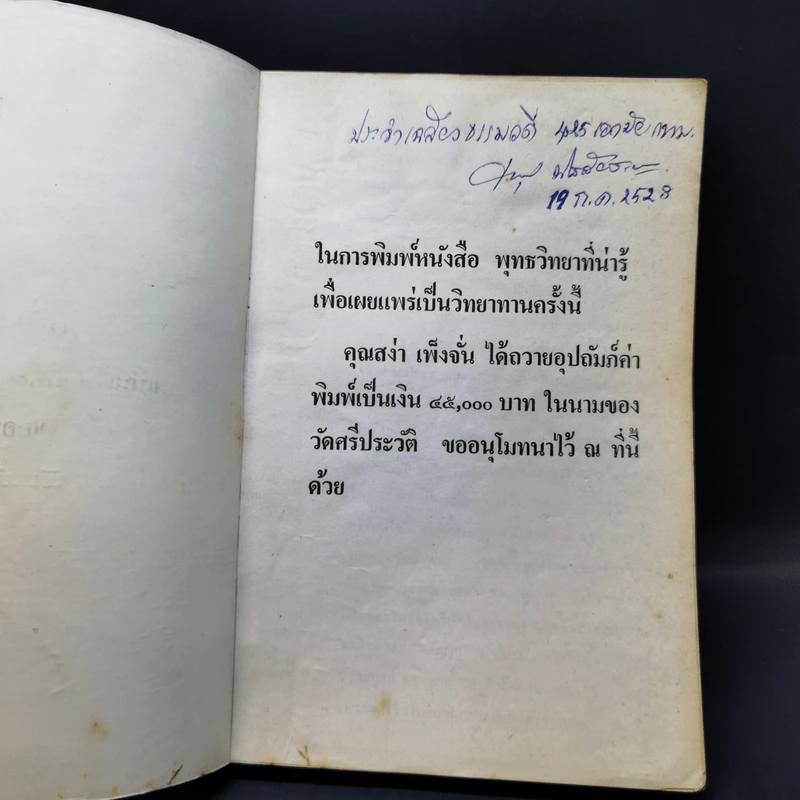 19 ก.ค. 2528
ในการพิมพ์หนังสือ พุทธวิทยาที่น่ารู้
เพื่อเผยแพร่เป็นวิทยาทานครั้งนี้
คุณสง่า เพ็งจั่น ได้ถวายอุปถัมภ์ค่า
พิมพ์เป็นเงิน ๔๕,๐๐๐ บาท ในนามของ
วัดศรีประวัติ ขออนุโมทนาไว้ ณ ที่นี้
ด้วย